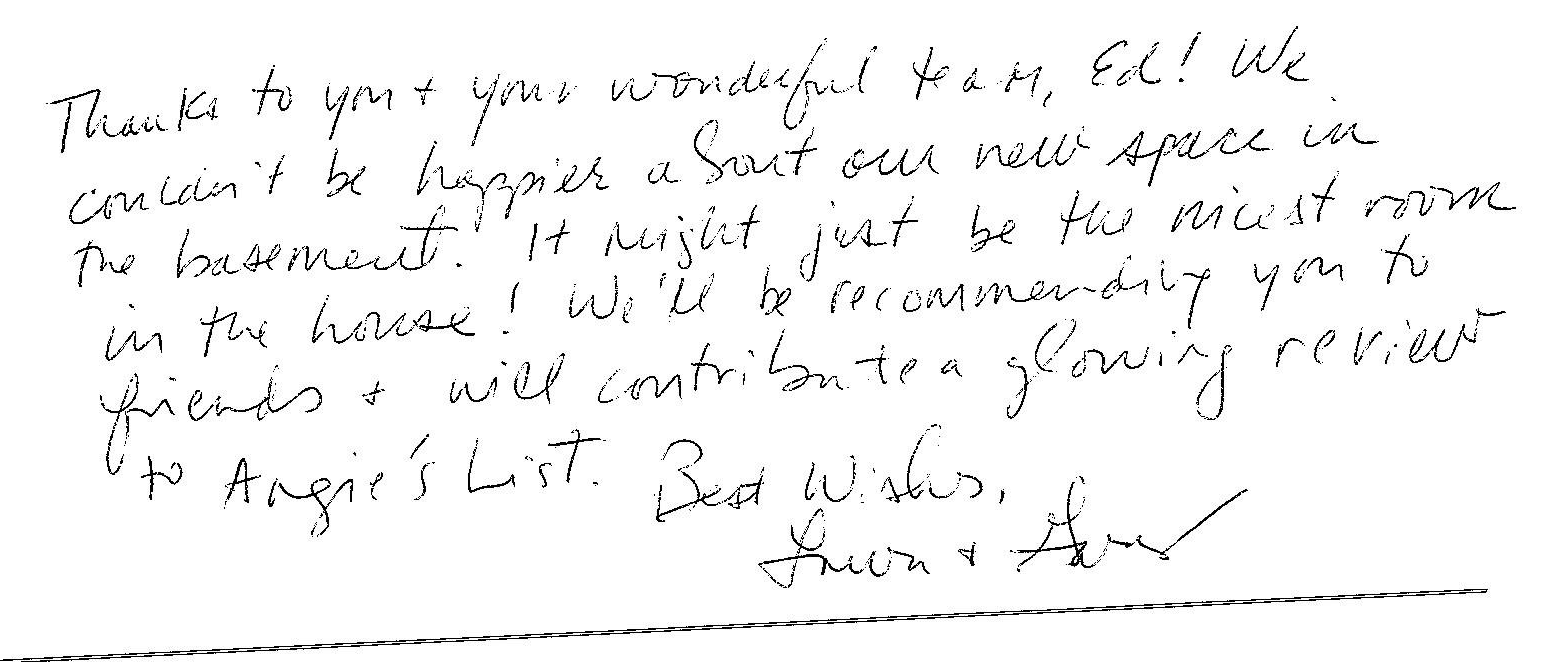 Thanks to you + your wonderful team, Ed! We
couldn't be happier about our new space in
the basement. It might just be the nicest room
in the house! We'll be recommending you to
friends + will contribute a glowing review
to Angie's List. Best Wishes,
+